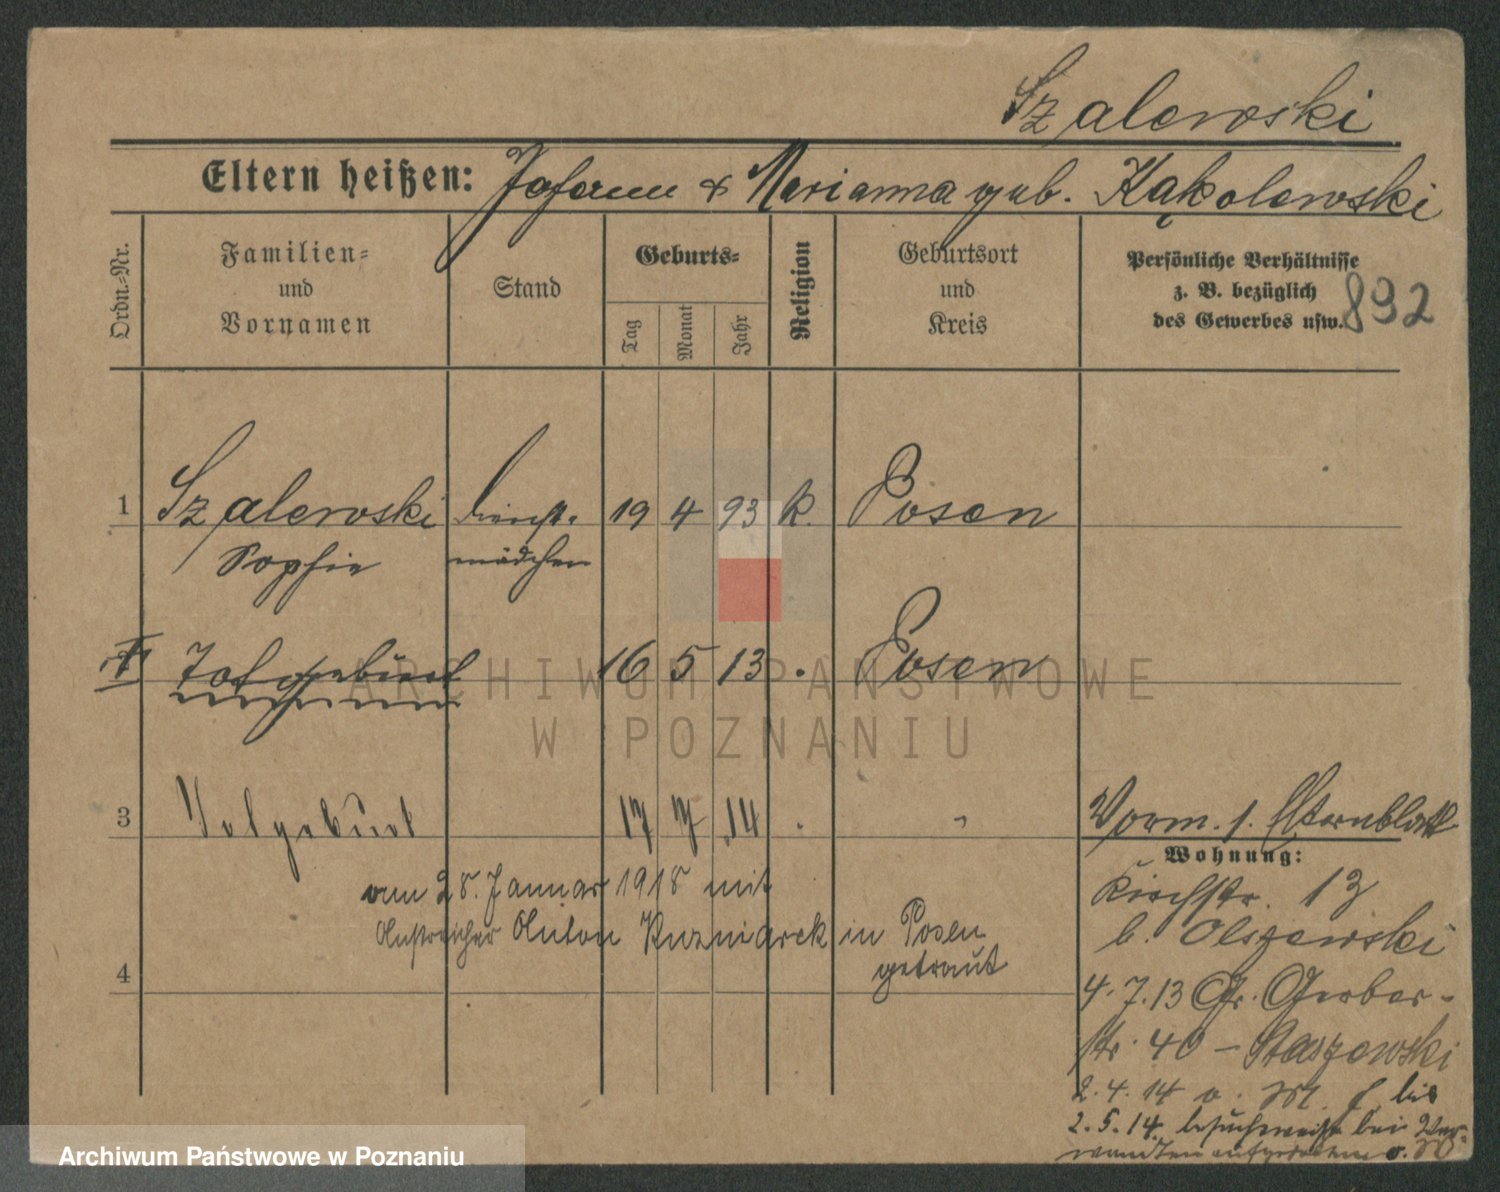 Szalewski
Eltern heißen: Johann & Marianna geb. Kąkolewski
Ordn.-Nr.
Familien-
und
Vornamen
Stand
Geburts-
Tag
Monat
Jahr
Religion
Geburtsort
und
Kreis
Persönliche Verhältnisse
z. B. bezüglich
des Gewerbes usw.
892
1 Szalewski Dienst- 19 4 93 k. Posen
Sophie mädchen
Totgeburt 16 5 13 Posen
3 Totgeburt 17 7 14 "
Vorm. 1. Elternblatt
Wohnung:
am 28. Januar 1918 mit
Anstreicher Anton Kuzniarek in Posen
getraut
4
Kirchstr. 13
b. Olszewski
4.7.13 Gr. Gerber-
str. 40 – Staszewski
2.4.14 v. M. bis
2.5.14. besuchsweise bei Ver-
wandten aufgehalten
ARCHIWUM PAŃSTWOWE
W POZNANIU
Archiwum Państwowe w Poznaniu